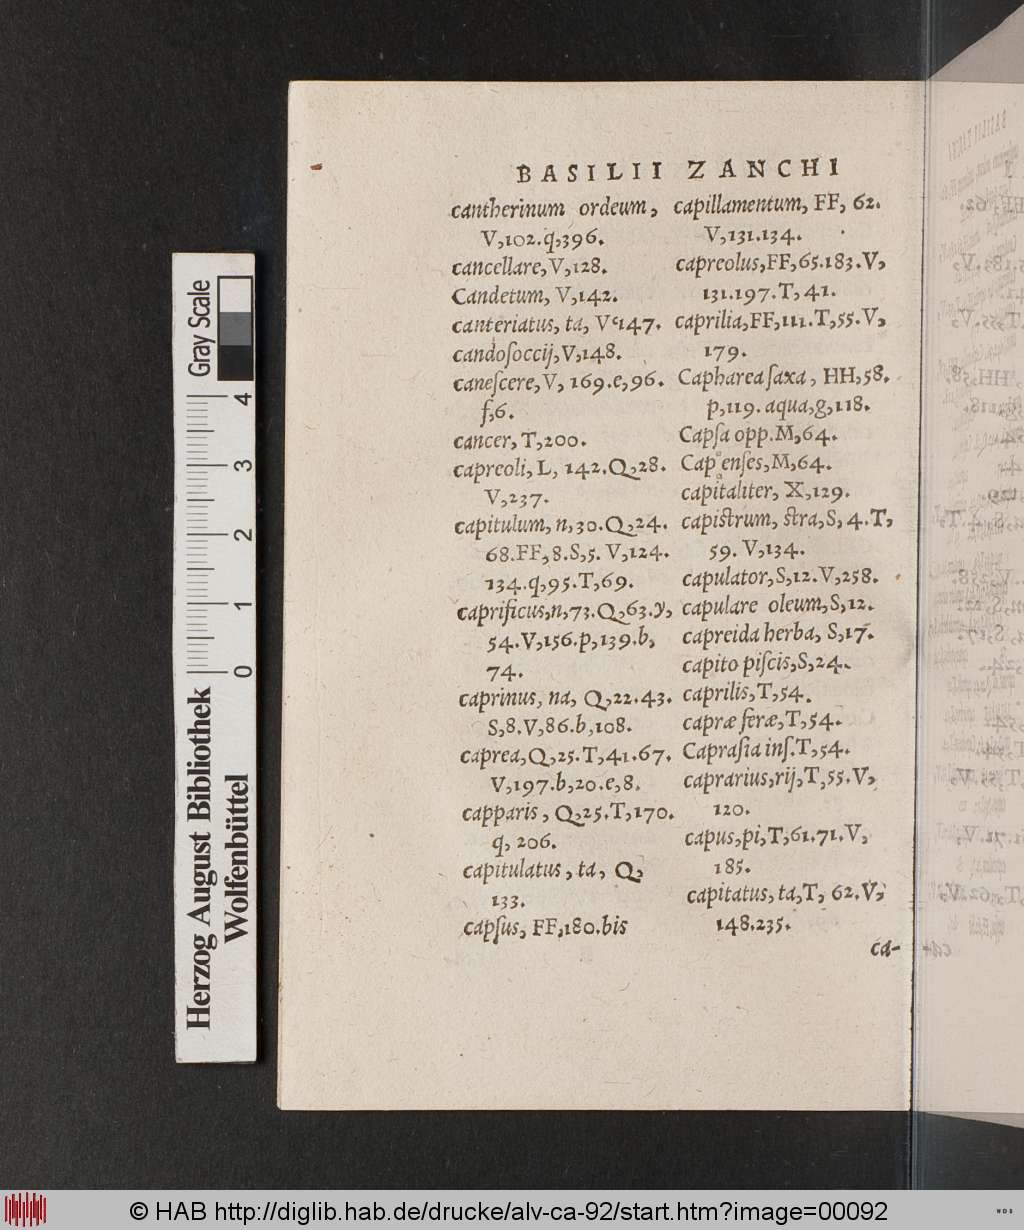 BASILII ZANCHI
cantherinum ordeum,
V,102.q,396.
cancellare,V,128.
Candetum, V,142.
canteriatus, ta, V 147.
candosoccij,V,148.
canescere,V, 169.e,96.
f,6.
cancer, T,200.
capreoli, L, 142.Q,28.
V,237.
capitulum, n,30.Q,24.
68.FF,8.S,5. V,124.
134.q,95.T,69.
caprificus,n,73.Q,63.y,
54.V,156.p,139.b,
74.
caprinus, na, Q,22.43.
S,8.V,86.b,108.
caprea,Q,25.T,41.67.
V,197.b,20.e,8.
capparis, Q,25.T,170.
q, 206.
capitulatus, ta, Q,
133.
capsus, FF,180.bis
capillamentum, FF, 62.
V,131.134.
capreolus,FF,65.183.V,
131.197.T,41.
caprilia,FF,111.T,55.V,
179.
Capharea saxa, HH,58.
p,119. aqua,g,118.
Capsa opp.M,64.
Capsenses,M,64.
capitaliter, X,129.
capistrum, stra,S, 4.T,
59. V,134.
capulator,S,12.V,258.
capulare oleum,S,12.
capreida herba, S,17.
capito piscis,S,24.
caprilis,T,54.
capræ feræ,T,54.
Caprasia inf.T,54.
caprarius,rij,T,55.V,
120.
capus,pi,T,61.71.V,
185.
capitatus, ta,T, 62.V,
148.235.
ca-
Gray Scale
4
3
2
1
0
Herzog August Bibliothek
Wolfenbüttel
© HAB http://diglib.hab.de/drucke/alv-ca-92/start.htm?image=00092